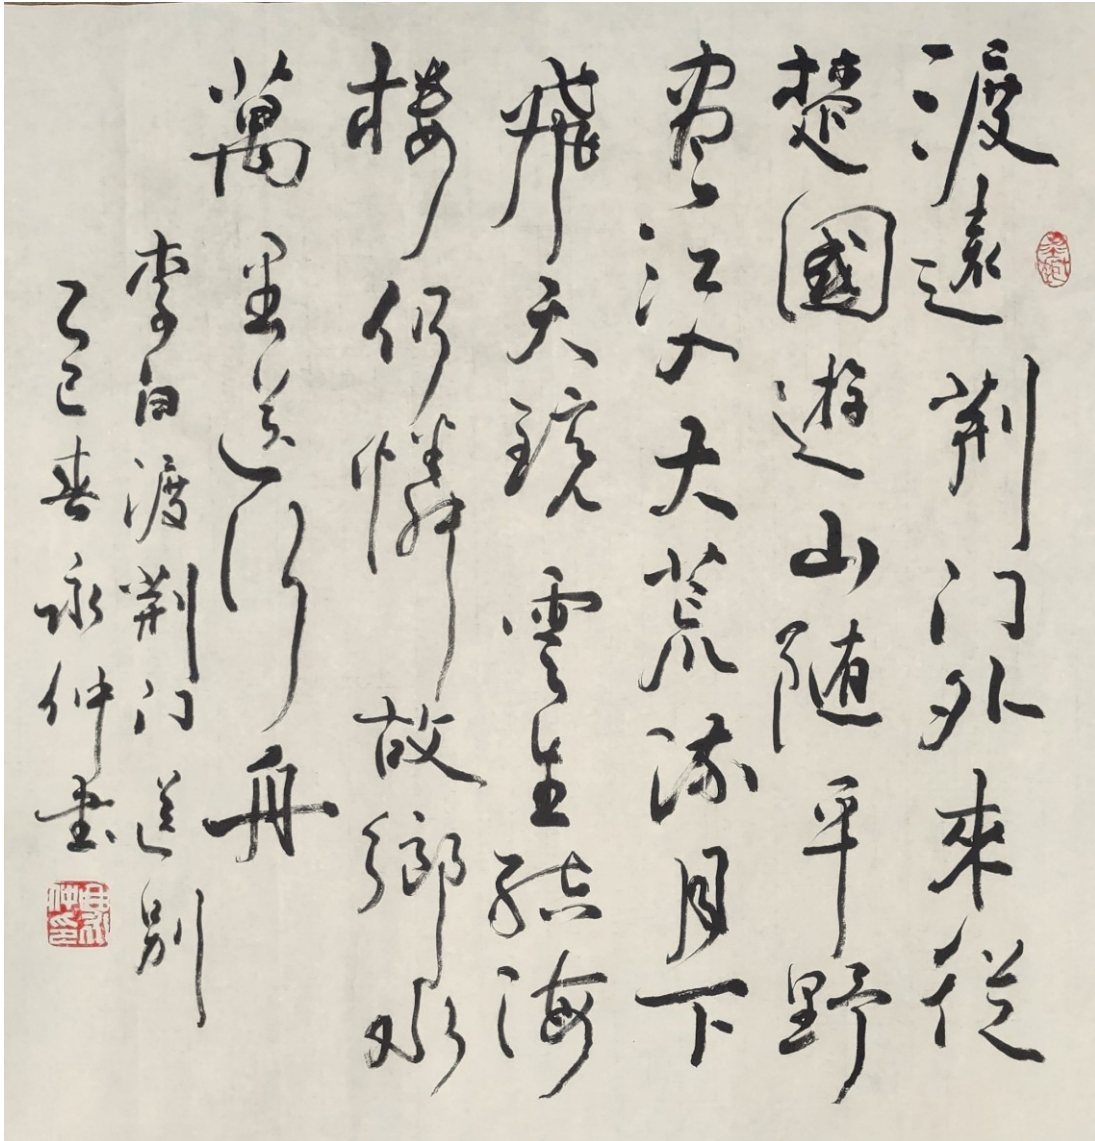 渡遠荆门外來從
楚國遊山随平野
盡江入大荒流月下
飛天鏡雲生結海
楼仍憐故鄉水
萬里送行舟
李白渡荆门送别
乙巳春永仲書